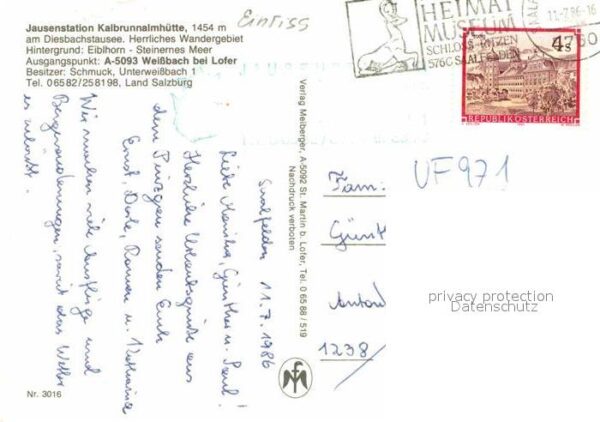 Jausenstation Kalbrunnalmhütte, 1454 m
am Diesbachstausee. Herrliches Wandergebiet
Hintergrund: Eiblhorn - Steinernes Meer
Ausgangspunkt: A-5093 Weißbach bei Lofer
Besitzer: Schmuck, Unterweißbach 1
Tel. 06582/258198, Land Salzburg
HEIMAT
MUSEUM
SCHLOSS RITZEN
5760 SAALFELDEN
4 S
REPUBLIK ÖSTERREICH
Verlag Melberger, A-5092 St. Martin b. Lofer, Tel. 0 65 88 / 519
Nachdruck verboten
Saalfelden 11.7.1986
Liebe Günther u. Paul!
Herzliche Urlaubsgrüße aus
dem Pinzgau senden Euch
Ernst, Roman u. Katharina
Wir machen viele Ausflüge und
Bergwanderungen, soweit das Wetter
es zuläßt.
Fam.
Günt
Anton
1238/
UF971
privacy protection
Datenschutz
Nr. 3016